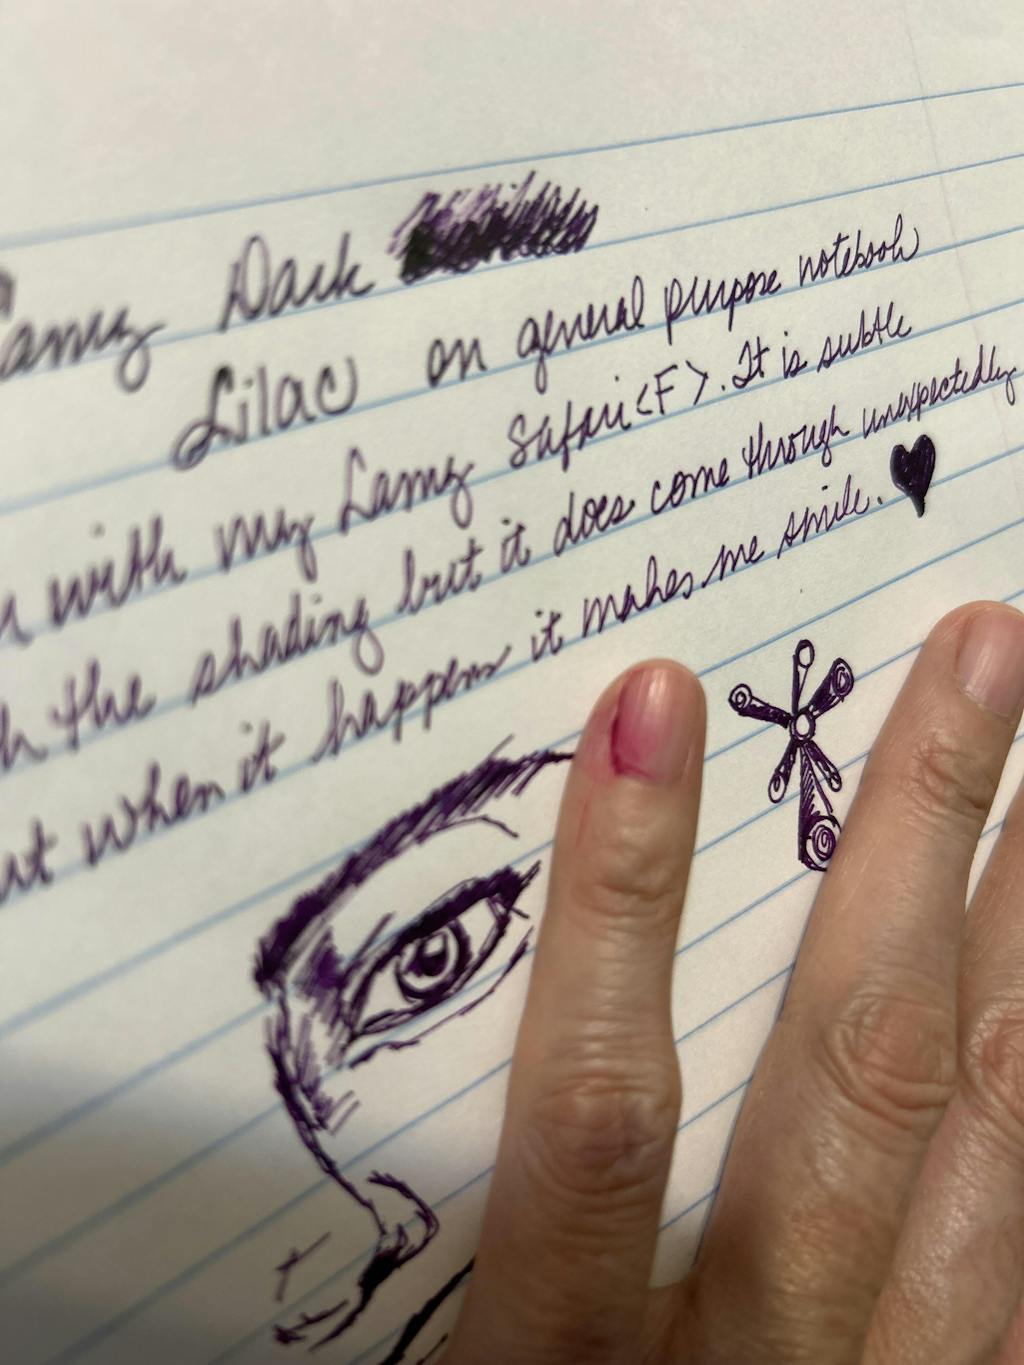 Lamy Dark
Lilac on general purpose notebook
with my Lamy Safari <F>. It is subtle
the shading but it does come through unexpectedly
but when it happens it makes me smile.